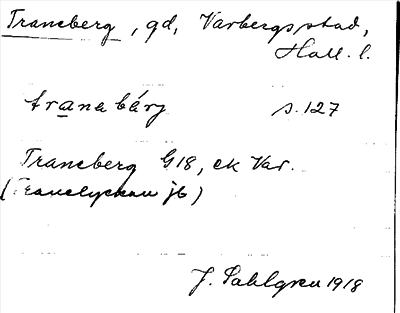 Traneberg, gd, Varbergs stad,
Hall. l.
tranabärj s. 127
Traneberg G18, ek Var.
(Tranelyckan jb)
J. Sahlgren 1918